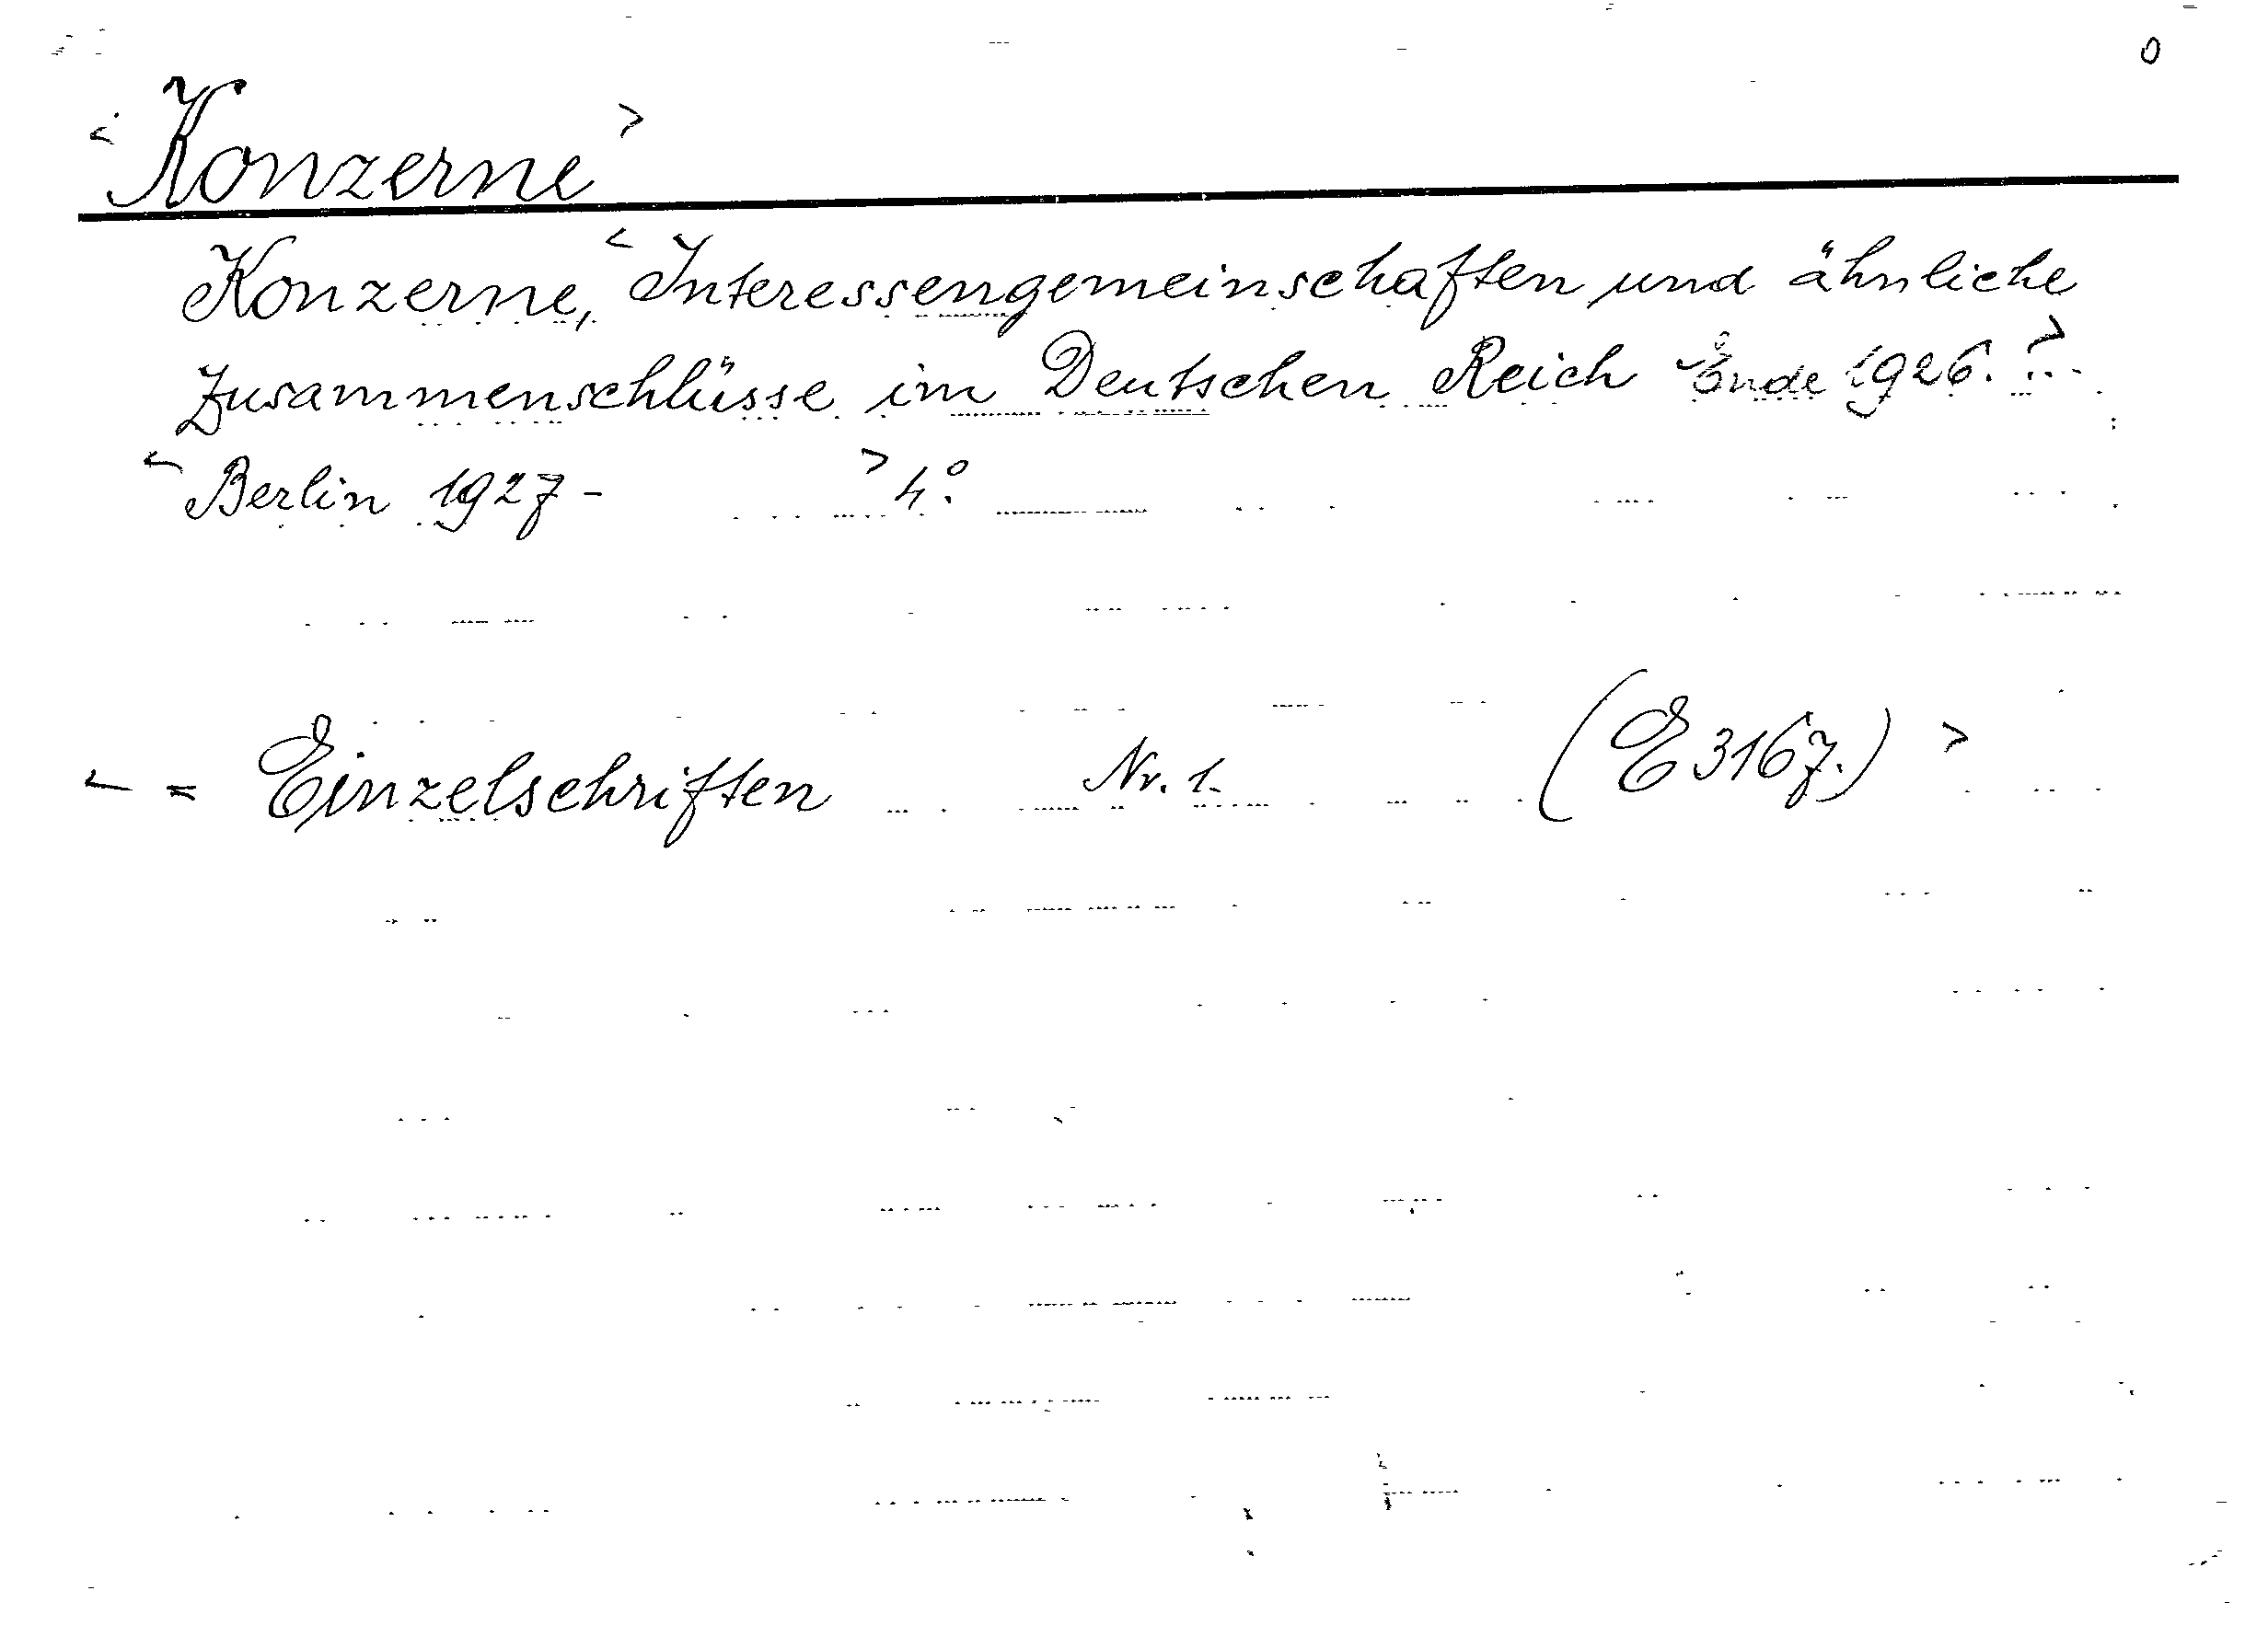 0
<Konzerne>
Konzerne, <Interessengemeinschaften und ähnliche
Zusammenschlüsse im Deutschen Reich Ende 1926.>..
<Berlin 1927- >4°.
<= Einzelschriften Nr. 1. (E 3167.)>